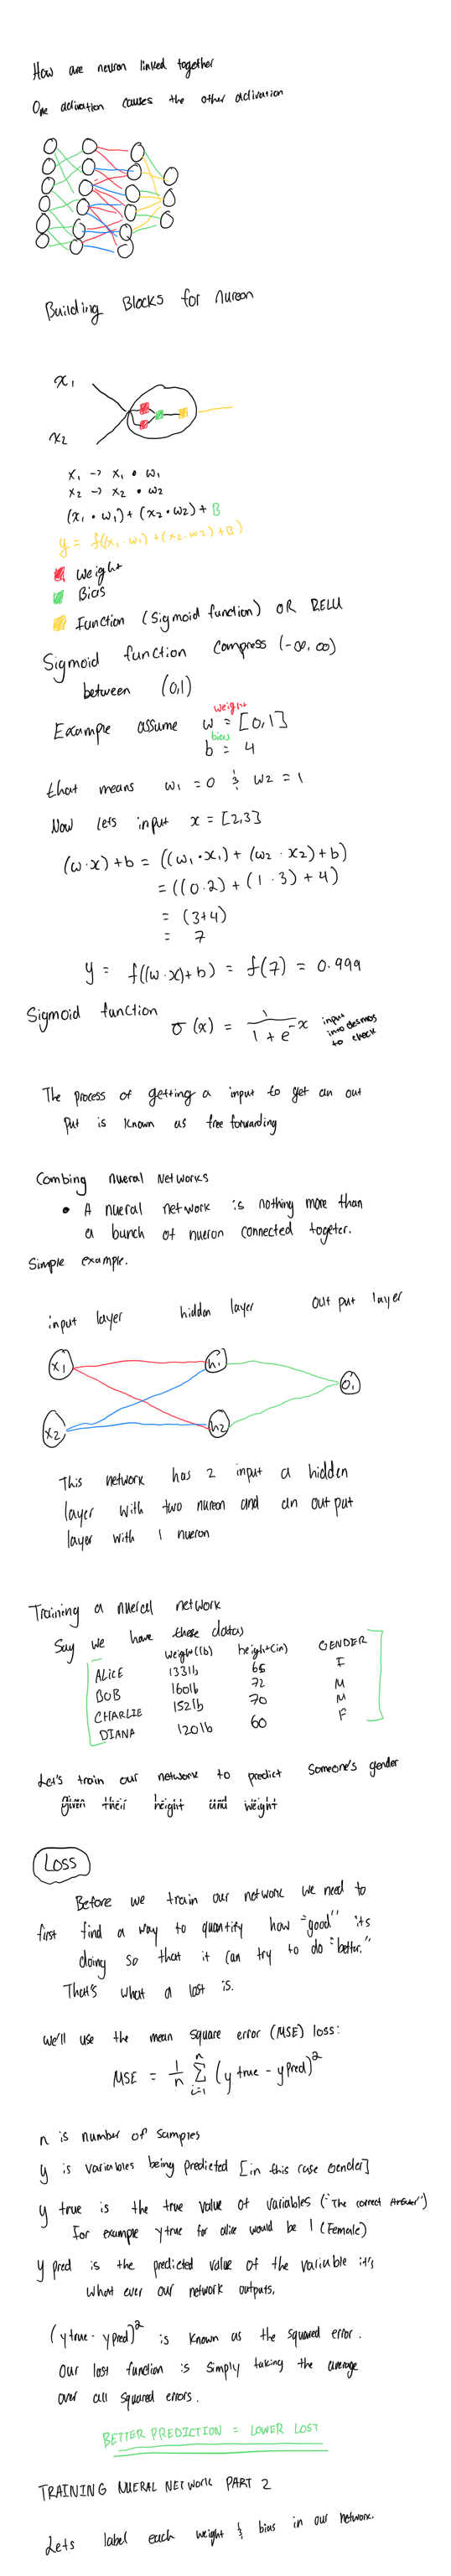 How are neuron linked together
One activation causes the other activation
Building Blocks for nureon
x1
x2
x1 -> x1 • w1
x2 -> x2 • w2
(x1 • w1) + (x2 • w2) + B
y = f((x1 · w1) + (x2 · w2) + B)
Weight
Bias
Function (Sigmoid function) OR RELU
Sigmoid function compress (-∞, ∞)
between (0,1)
weight
Example assume w = [0,1]
bias
b = 4
that means w1 = 0 & w2 = 1
Now lets input x = [2,3]
(w·x) + b = ((w1·x1) + (w2·x2) + b)
= ((0·2) + (1·3) + 4)
= (3+4)
= 7
y = f((w·x) + b) = f(7) = 0.999
Sigmoid function σ(x) = 1 / 1 + e^-x input into desmos to check
The process of getting a input to get an out
put is known as free forwarding
Combing nueral Networks
• A nueral network is nothing more than
a bunch of nueron connected togeter.
Simple example.
input layer hidden layer out put layer
x1 h1
o1
x2 h2
This network has 2 input a hidden
layer with two nureon and an out put
layer with 1 nueron
Training a nuercel network
Say we have these datas
Weight(lb) height(in) GENDER
ALICE 133lb 65 F
BOB 160lb 72 M
CHARLIE 152lb 70 M
DIANA 120lb 60 F
Let's train our network to predict someone's gender
given their height and weight
LOSS
Before we train our network we need to
first find a way to quantify how "good" its
doing so that it can try to do "better."
That's what a lost is.
We'll use the mean square error (MSE) loss:
MSE = 1/n n Σ i=1 (y true - y pred)^2
n is number of samples
y is variables being predicted [in this case Gender]
y true is the true value of variables ("The correct Answer")
For example y true for alice would be 1 (Female)
y pred is the predicted value of the variable it's
what ever our network outputs.
(y true - y pred)^2 is known as the squared error.
Our lost function is simply taking the average
over all squared errors.
BETTER PREDICTION = LOWER LOST
TRAINING NUERAL NETWORK PART 2
Lets label each weight & bias in our network.